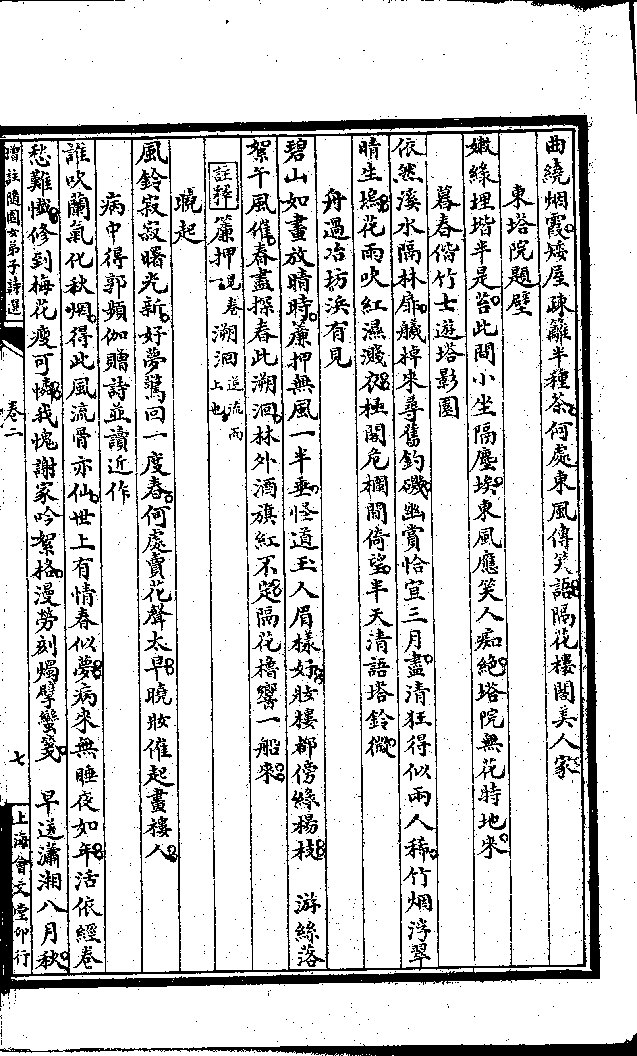 曲繞烟霞矮屋疎籬半種茶何處東風傳笑語隔花樓閣美人家
東塔院題壁
嫩綠埋堦半是苔此間小坐隔塵埃東風應笑人痴絶塔院無花時地來
暮春偕竹士遊塔影園
依然溪水隔林扉艤棹來尋舊釣磯幽賞恰宜三月盡清狂得似兩人稀竹烟浮翠
晴生塢花雨吹紅濕濺衣極閣危欄閒倚望半天清語塔鈴微
舟過冶坊浜有見
碧山如畫放晴時簾押無風一半垂怪道玉人眉樣好妝樓都傍綠楊枝 游絲落
絮午風催春盡探春此溯洄林外酒旗紅不定隔花櫓響一船來
註釋 簾押見卷一溯洄逆流而上也
曉起
風鈴寂寂曙光新好夢驚回一度春何處賣花聲太早曉妝催起畫樓人
病中得郭頻伽贈詩並讀近作
誰吹蘭氣化秋烟得此風流骨亦仙世上有情春似夢病來無睡夜如年活依經卷
愁難懺修到梅花瘦可憐我愧謝家吟絮格漫勞刻燭擘蠻箋 早送瀟湘八月秋
增註隨園女弟子詩選 卷二 七 上海會文堂印行